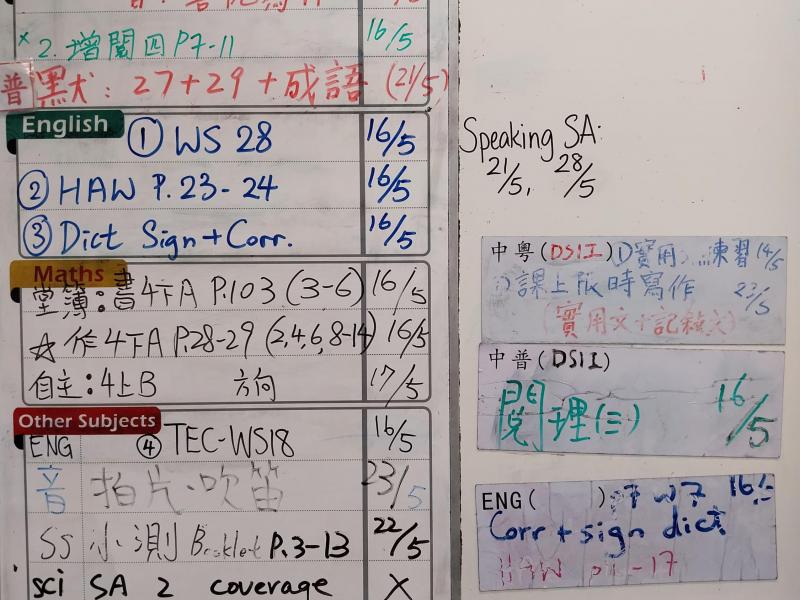 x 2. 增閱四 P7-11 16/5
普 默犬: 27+29+成語 (21/5)
English
① WS 28 16/5
② HAW P.23-24 16/5
③ Dict Sign + Corr. 16/5
Maths
堂簿: 書4下A P.103 (3-6) 16/5
☆ 作4下A P.28-29 (2,4,6,8-14) 16/5
自主: 4上B 方向 17/5
Other Subjects
ENG ④ TEC-WS18 16/5
音 拍片·吹笛 23/5
SS 小測 Booklet P.3-13 22/5
sci SA 2 coverage X
Speaking SA:
21/5, 28/5
中粵(DSII) ①實用 練習 14/5
課上限時寫作 23/5
(實用文+記敍文)
中普(DSII)
閱理(三) 16/5
ENG( )
Corr + sign dict
-17